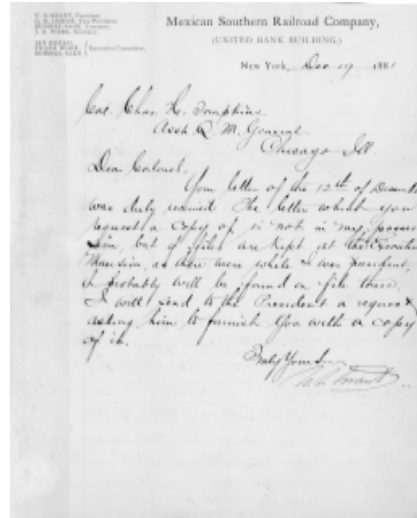 U. S. GRANT, President.
Mexican Southern Railroad Company,
(UNITED BANK BUILDING.)
Executive Committee.
New York, Dec 19 1881
Col. Chas. H. Tompkins
Asst Q. M. General
Chicago Ill.
Dear Colonel;
Your letter of the 12th of December
was duly received. The letter which you
request a copy of is not in my posses-
sion, but if files are kept at the Executive
Mansion, as there were while I was president,
it probably will be found on file there.
I will send to the President a request
asking him to furnish you with a copy
of it.
Truly Yours
U. S. Grant